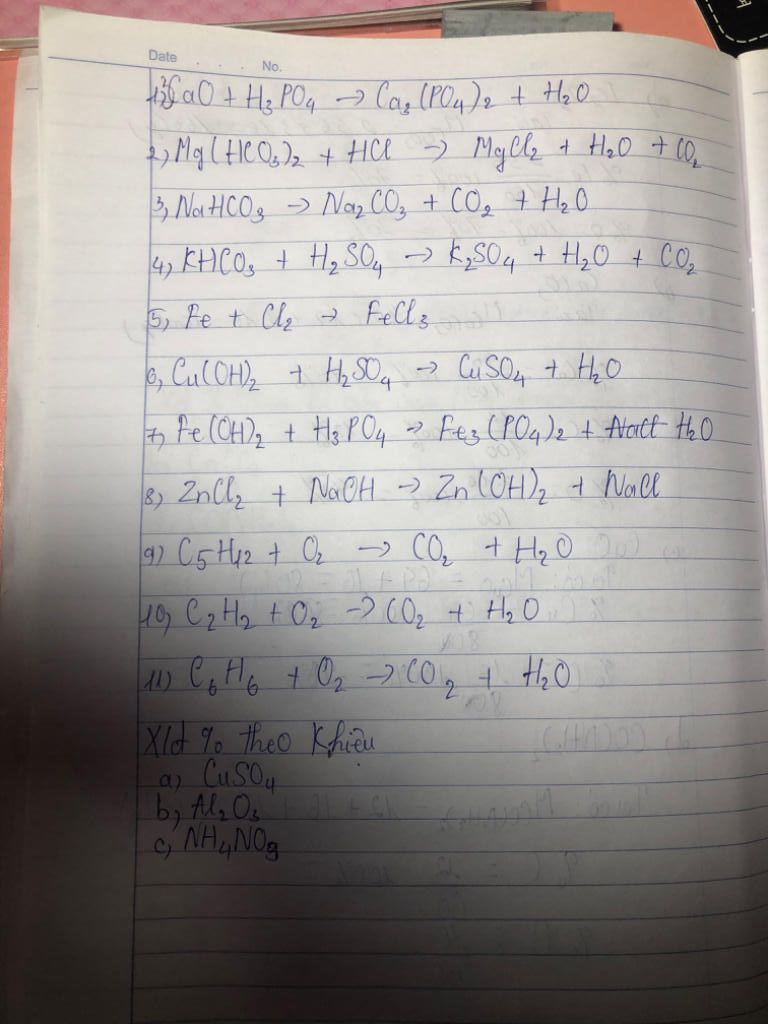 Date . . . No.
1, CaO + H3PO4 → Ca3(PO4)2 + H2O
2, Mg(HCO3)2 + HCl → MgCl2 + H2O + CO2
3, NaHCO3 → Na2CO3 + CO2 + H2O
4, KHCO3 + H2SO4 → K2SO4 + H2O + CO2
5, Fe + Cl2 → FeCl3
6, Cu(OH)2 + H2SO4 → CuSO4 + H2O
7, Fe(OH)2 + H3PO4 → Fe3(PO4)2 + H2O
8, ZnCl2 + NaOH → Zn(OH)2 + NaCl
9) C5H12 + O2 → CO2 + H2O
10, C2H2 + O2 → CO2 + H2O
11) C6H6 + O2 → CO2 + H2O
% theo
a) CuSO4
b, Al2O3
c, NH4NO3